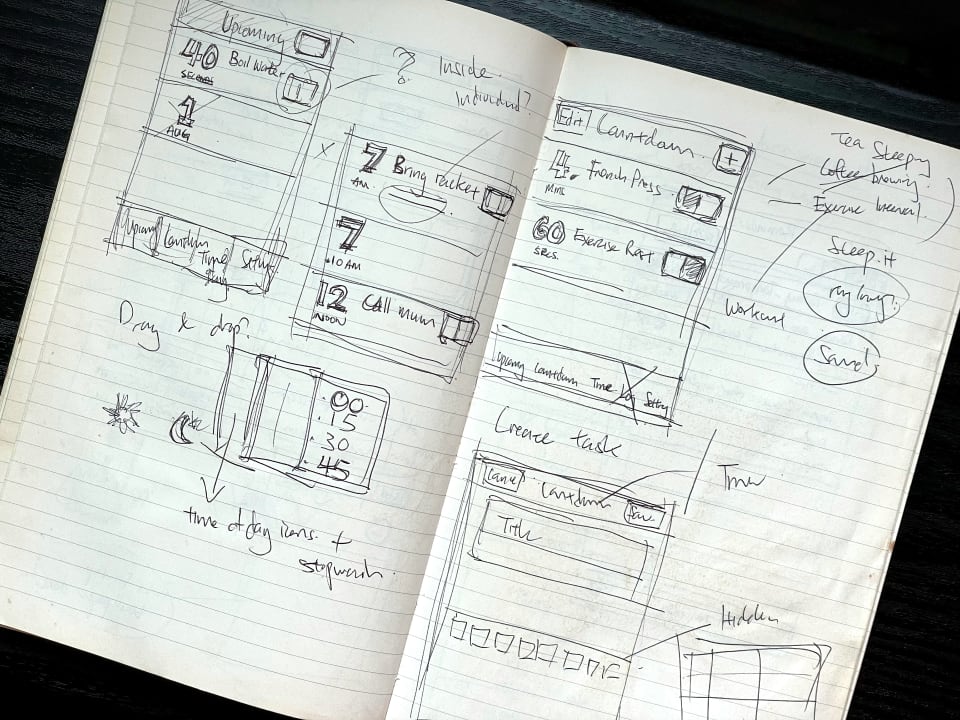 Upcoming
40 Boil Water
SECONDS
17
? Inside
individual?
1
AUG
X
7 Bring racket
AM.
7
.10 AM
12 Call mum
NOON
Countdown
Time
Drag & drop?
00
15
30
45
time of day icons. +
stopwatch.
Edit Countdown +
4. French Press
MINS
60 Exercise Rest
SECS.
Upcoming Countdown Time Log Setting
Tea Sleeping
Coffee brewing.
Exercise Interval.
Sleep.it
Workout
Sounds
Create task
Timer
Cancel Countdown Save
Title
Hidden